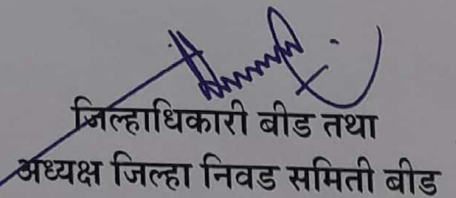 जिल्हाधिकारी बीड तथा
अध्यक्ष जिल्हा निवड समिती बीड